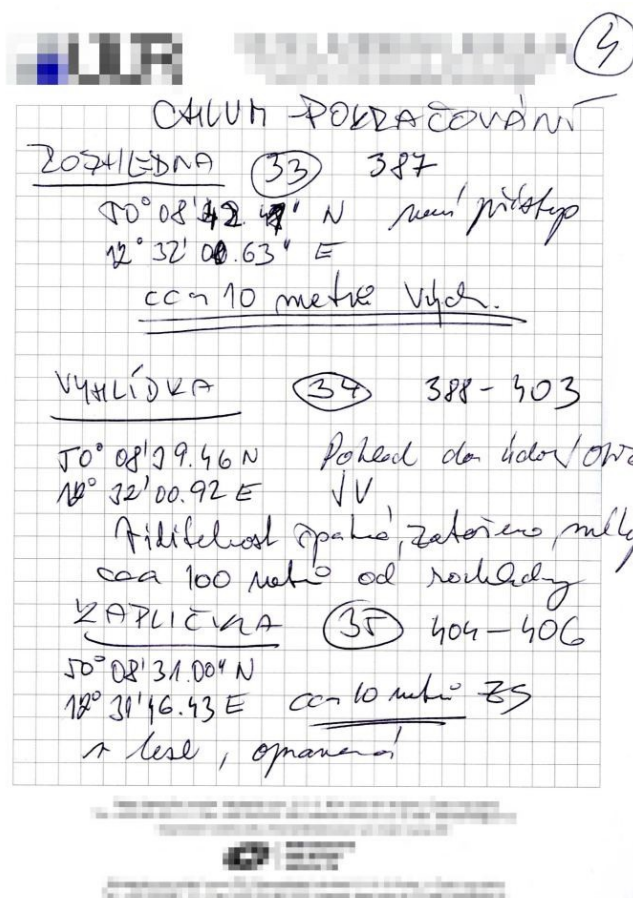 4
CHLUM - POKRAČOVÁNÍ
ROZHLEDNA 33 387
50° 08' N není přístup
12° 32' 00.63" E
cca 10 metrů Vých.
VYHLÍDKA 34 388-403
50° 08' 39.46 N Pohled do údolí
12° 32' 00.92 E JV
Viditelnost špatná, zataženo, mlhy
cca 100 metrů od rozhledny
KAPLIČKA 35 404-406
50° 08' 31.00" N
12° 31' 46.43 E cca 10 metrů
v lese, opravená